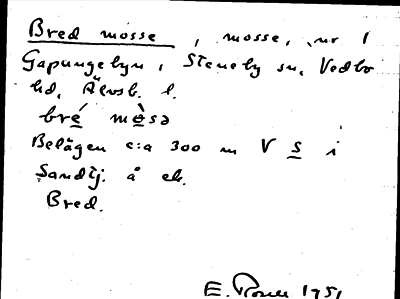 Bred mosse, mosse, nr 1
Gapungebyn, Steneby sn, Vedbo
hd, Älvsb. l.
bre mosə
Belägen c:a 300 m V S i
Sandtj. å ek.
Bred.
E. Rosell 1951